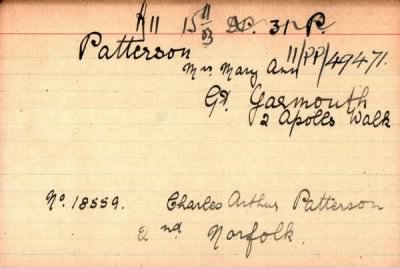 A11 15 11/03 31 P.
Patterson
Mrs Mary Ann 11/PP/49471.
Gt. Yarmouth
2 Apollo Walk
No. 18559. Charles Arthur Patterson
2nd Norfolk.